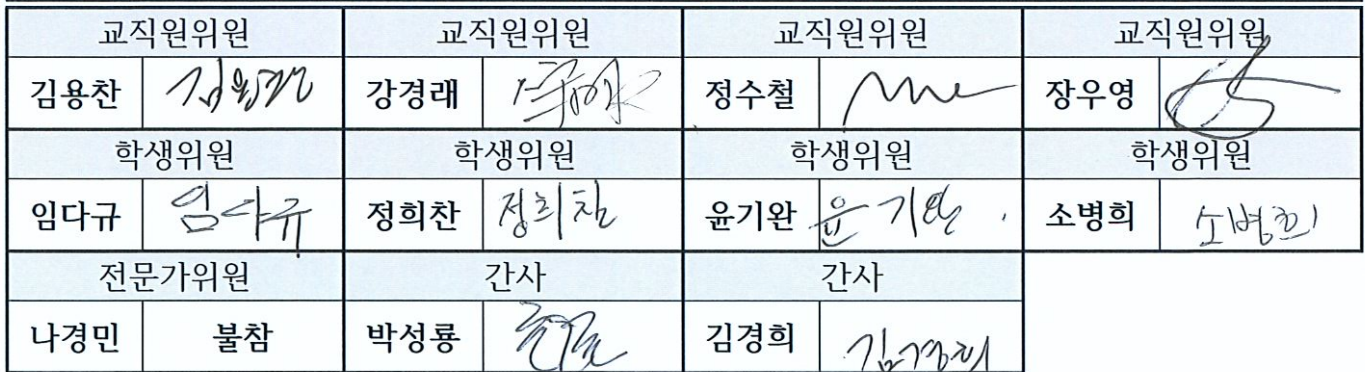 교직원위원 교직원위원 교직원위원 교직원위원
김용찬 김용찬 강경래 정수철 장우영
학생위원 학생위원 학생위원 학생위원
임다규 임다규 정희찬 정희찬 윤기완 윤기완 소병희 소병희
전문가위원 간사 간사
나경민 불참 박성룡 김경희 김경희